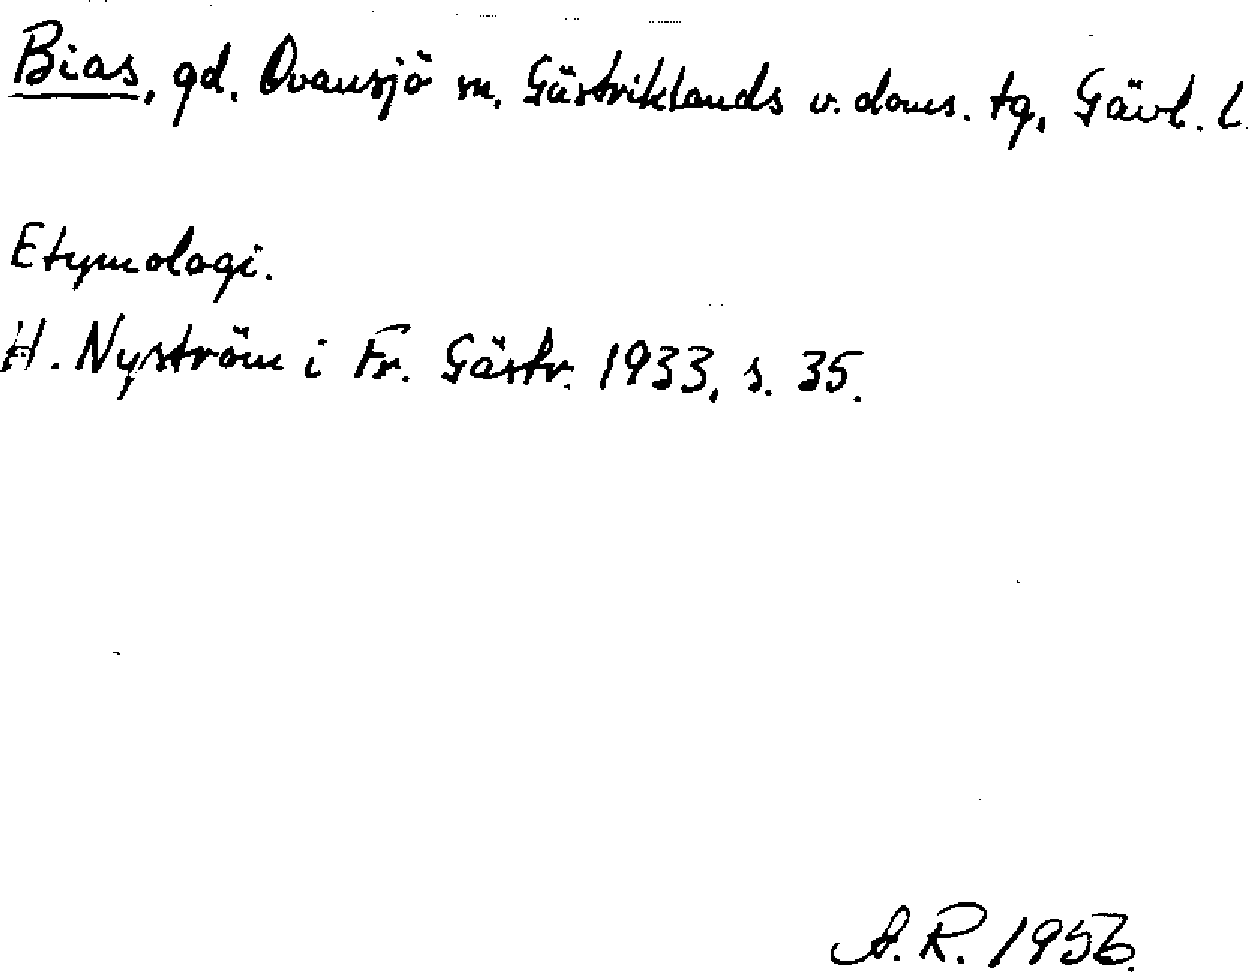 Bias, gd. Ovansjö sn, Gästriklands v. doms. tg, Gävl. l.
Etymologi.
H. Nyström i Fr. Gästr. 1933, s. 35.
A. R. 1956.